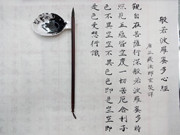 般若波羅蜜多心經
唐三藏法師玄奘譯
觀自在菩薩行深般若波羅蜜多時
照見五蘊皆空度一切苦厄舍利子
色不異空空不異色色即是空空即
是色受想行識